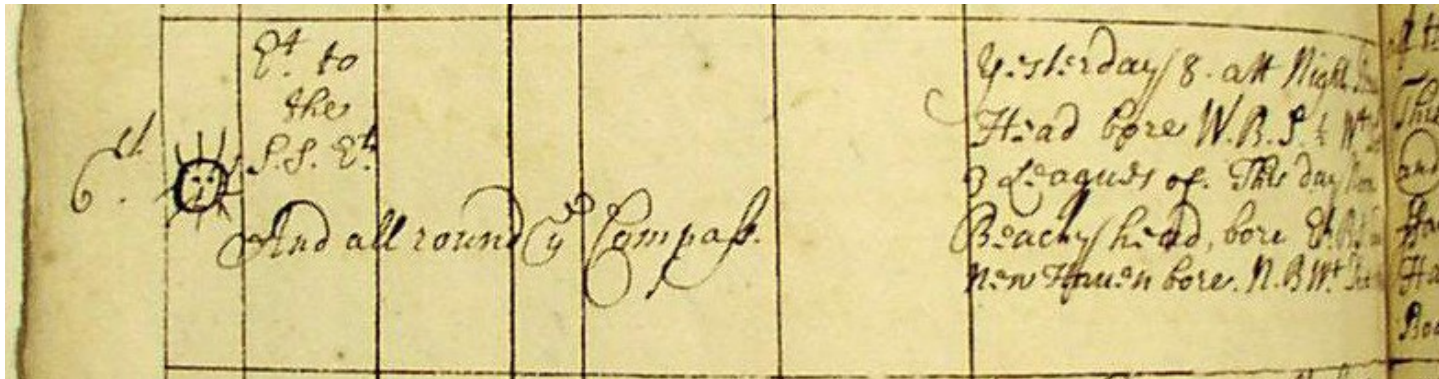 6th.
Et. to
the
S.S. Et.
And all round ye Compass.
Yesterday 8. att Night
Head bore W.B.S. ½ Wt.
3 Leagues of. This day
Beachy head, bore Et. B.
New Haven bore. N.B Wt.
This
and